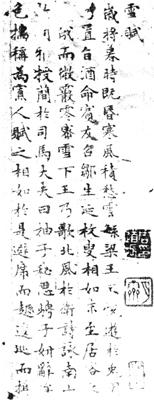 雪賦
歲將暮時既昏寒風積愁雲繁梁王不悅遊於兔園
乃置旨酒命賓友召鄒生延枚叟相如末至居客之
右俄而微霰零密雪下王乃歌北風於衛詩詠南山
於周雅授簡於司馬大夫曰抽子秘思騁子妍辭侔
色揣稱為寡人賦之相如於是避席而起逡巡而揖